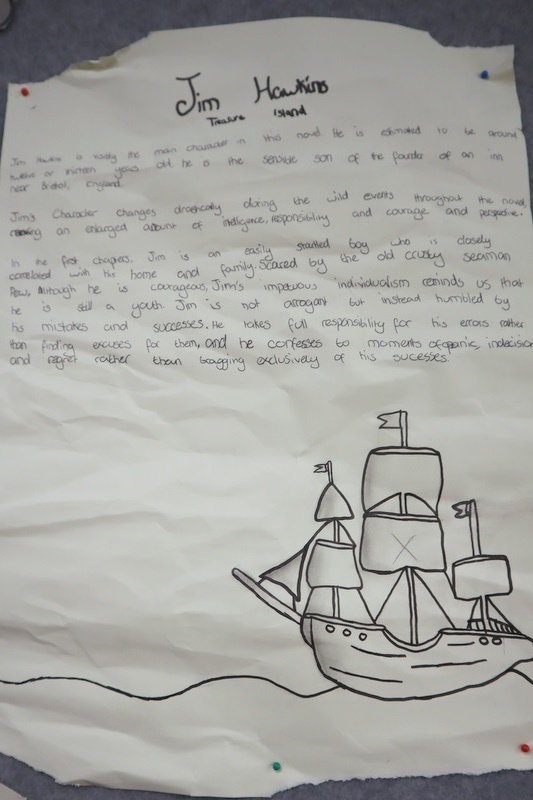 Jim Hawkins
Treasure Island
Jim Hawkins is the main character in this novel. He is estimated to be around
twelve or thirteen years old. he is the sensible son of the founder of an inn
near Bristol, England.
Jim's Character changes drastically during the wild events throughout the novel,
an enlarged amount of intelligence, responsibility and courage and perspective.
In the first chapters, Jim is an easily startled boy who is closely
correlated with his home and family. Scared by the old crusty seaman
Pew, Although he is courageous, Jim's impetuous individualism reminds us that
he is still a youth. Jim is not arrogant but instead humbled by
his mistakes and successes. He takes full responsibility for his errors rather
than finding excuses for them, and he confesses to moments of panic, indecision
and regret rather than bragging exclusively of his sucesses.